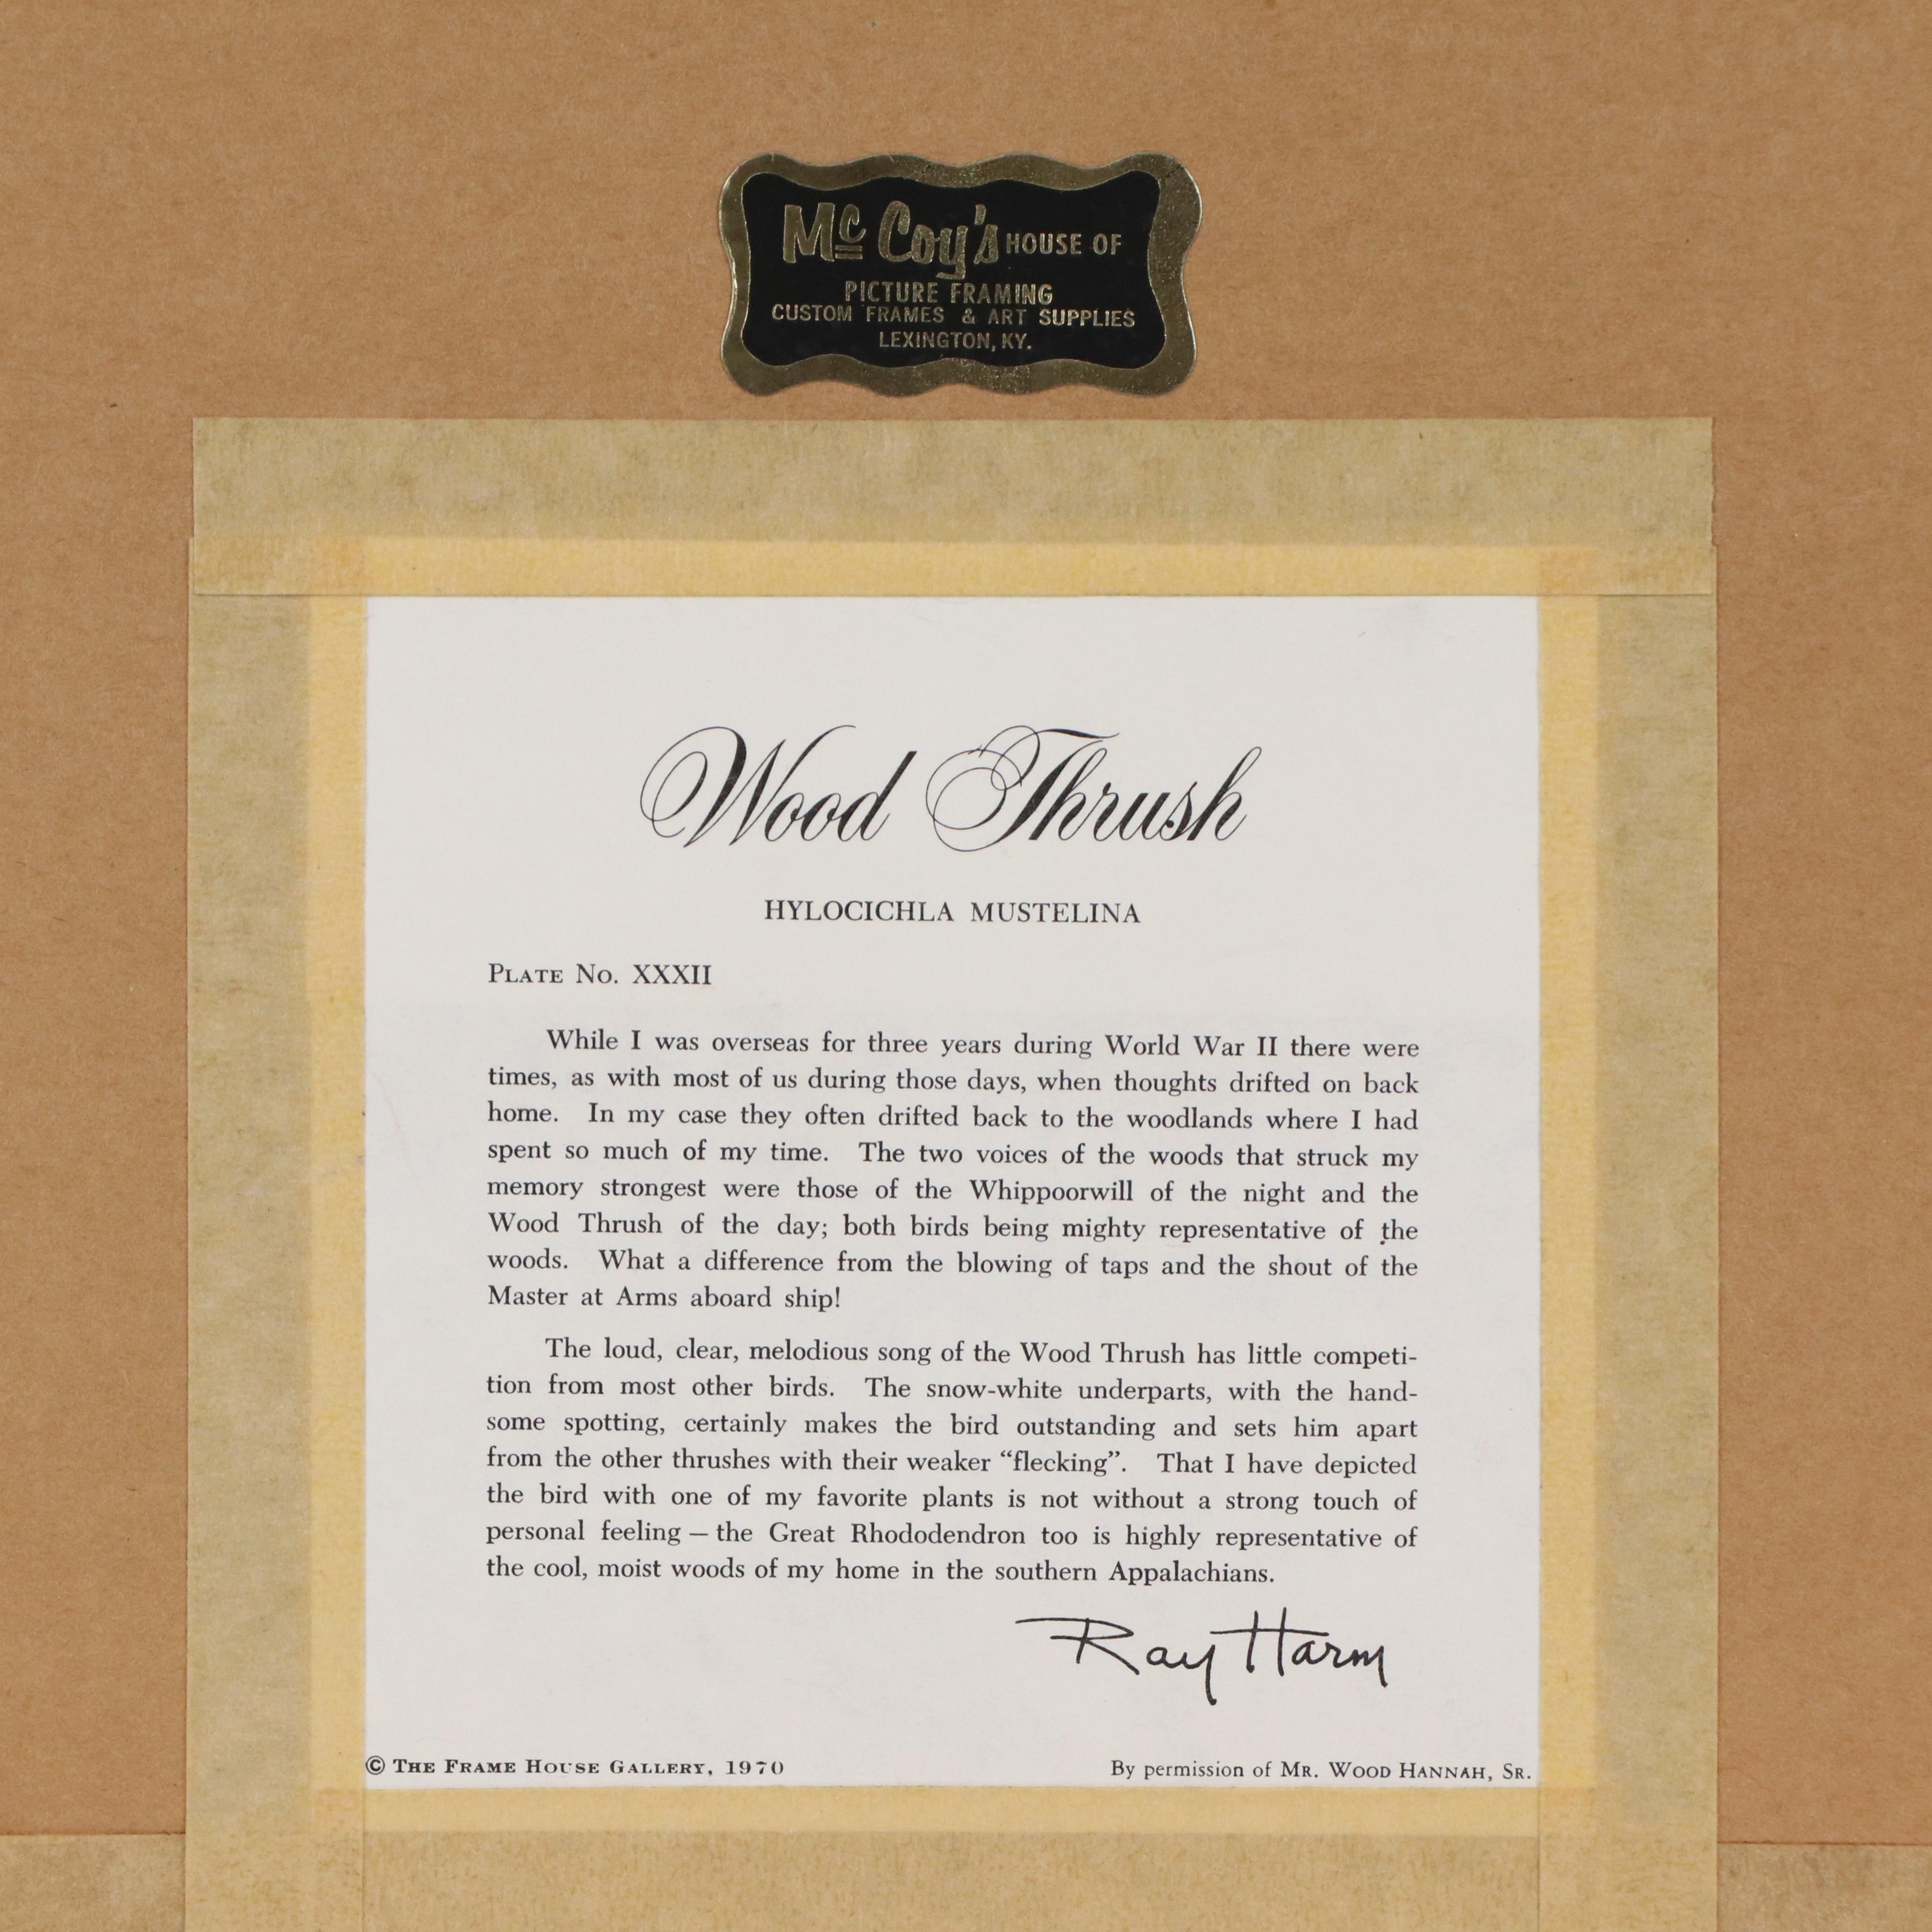 Mc Coy's HOUSE OF
PICTURE FRAMING
CUSTOM FRAMES & ART SUPPLIES
LEXINGTON, KY.
Wood Thrush
HYLOCICHLA MUSTELINA
PLATE NO. XXXII
While I was overseas for three years during World War II there were
times, as with most of us during those days, when thoughts drifted on back
home. In my case they often drifted back to the woodlands where I had
spent so much of my time. The two voices of the woods that struck my
memory strongest were those of the Whippoorwill of the night and the
Wood Thrush of the day; both birds being mighty representative of the
woods. What a difference from the blowing of taps and the shout of the
Master at Arms aboard ship!
The loud, clear, melodious song of the Wood Thrush has little competi-
tion from most other birds. The snow-white underparts, with the hand-
some spotting, certainly makes the bird outstanding and sets him apart
from the other thrushes with their weaker “flecking”. That I have depicted
the bird with one of my favorite plants is not without a strong touch of
personal feeling — the Great Rhododendron too is highly representative of
the cool, moist woods of my home in the southern Appalachians.
Ray Harm
© THE FRAME HOUSE GALLERY, 1970
By permission of MR. WOOD HANNAH, SR.